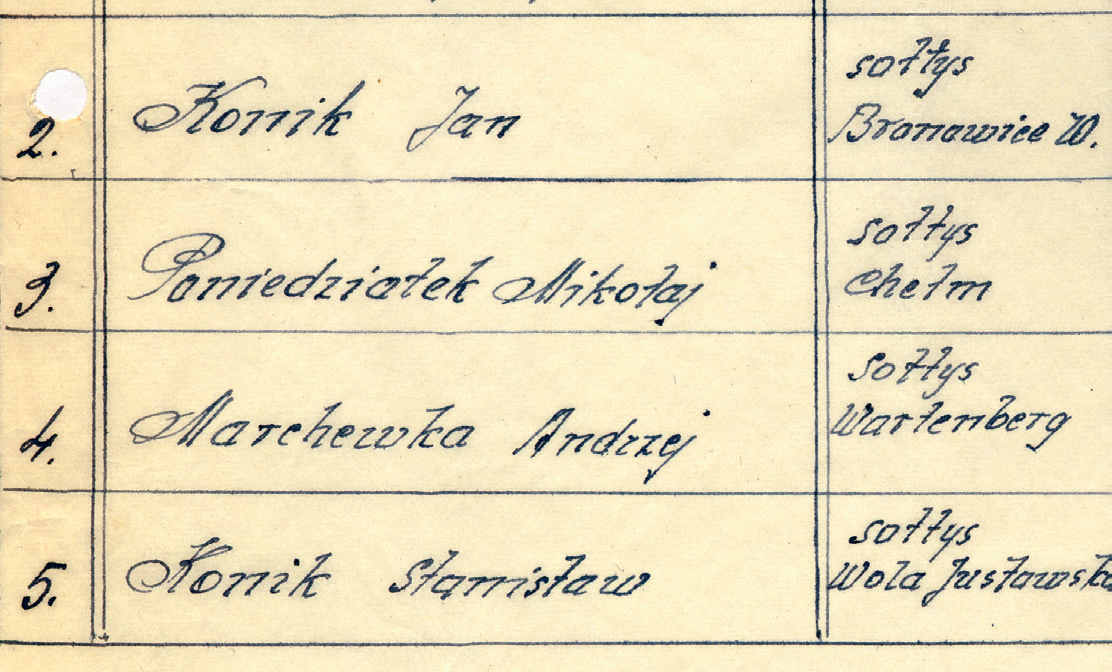 sołtys
2. Konik Jan Bronowice W.
sołtys
3. Poniedziałek Mikołaj Chełm
sołtys
4. Marchewka Andrzej Wartenberg
sołtys
5. Konik Stanisław Wola Justowska